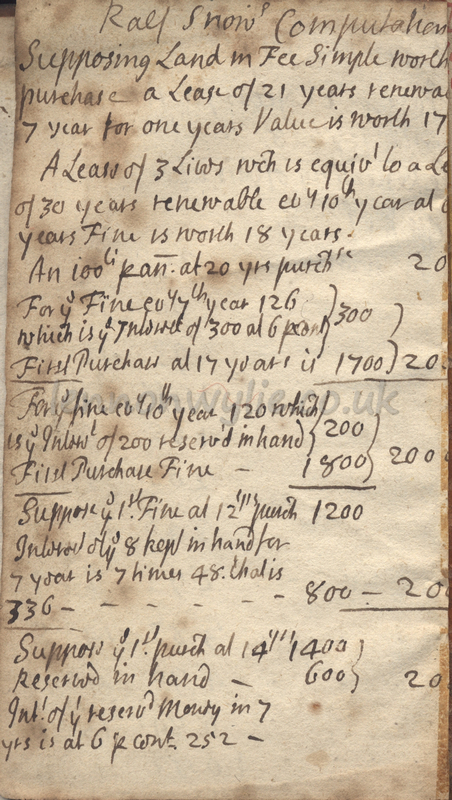 Ralf Snow's Computation
Supposing Land in Fee Simple worth
purchase a Lease of 21 years renewa
7 year for one years Value is worth 17
A Leas of 3 Lives wch is equivt to a Le
of 30 years renewable evy 10th year at a
years Fine is worth 18 years.
An 100li p an. at 20 yrs purchse 20
For ye Fine evy 7th year 126 } 300
which is ye Interest of 300 at 6 p cent
First Purchase at 17 years is 1700 } 20
For ye fine evy 10th year 120 which
is ye Interst of 200 reserv'd in hand } 200
First Purchase Fine - 1800 } 200
Suppose ye 1st. Fine at 12 yrs purch 1200
Interest of ye 8 kept in hand for
7 year is 7 times 48. that is
336 - - - - - - 800 - 20
Suppose ye 1st purch at 14 yrs 1400
Reserv'd in hand - 600 } 20
Intt. of ye reserv'd Money in 7
yrs is at 6 p cent. 252 -